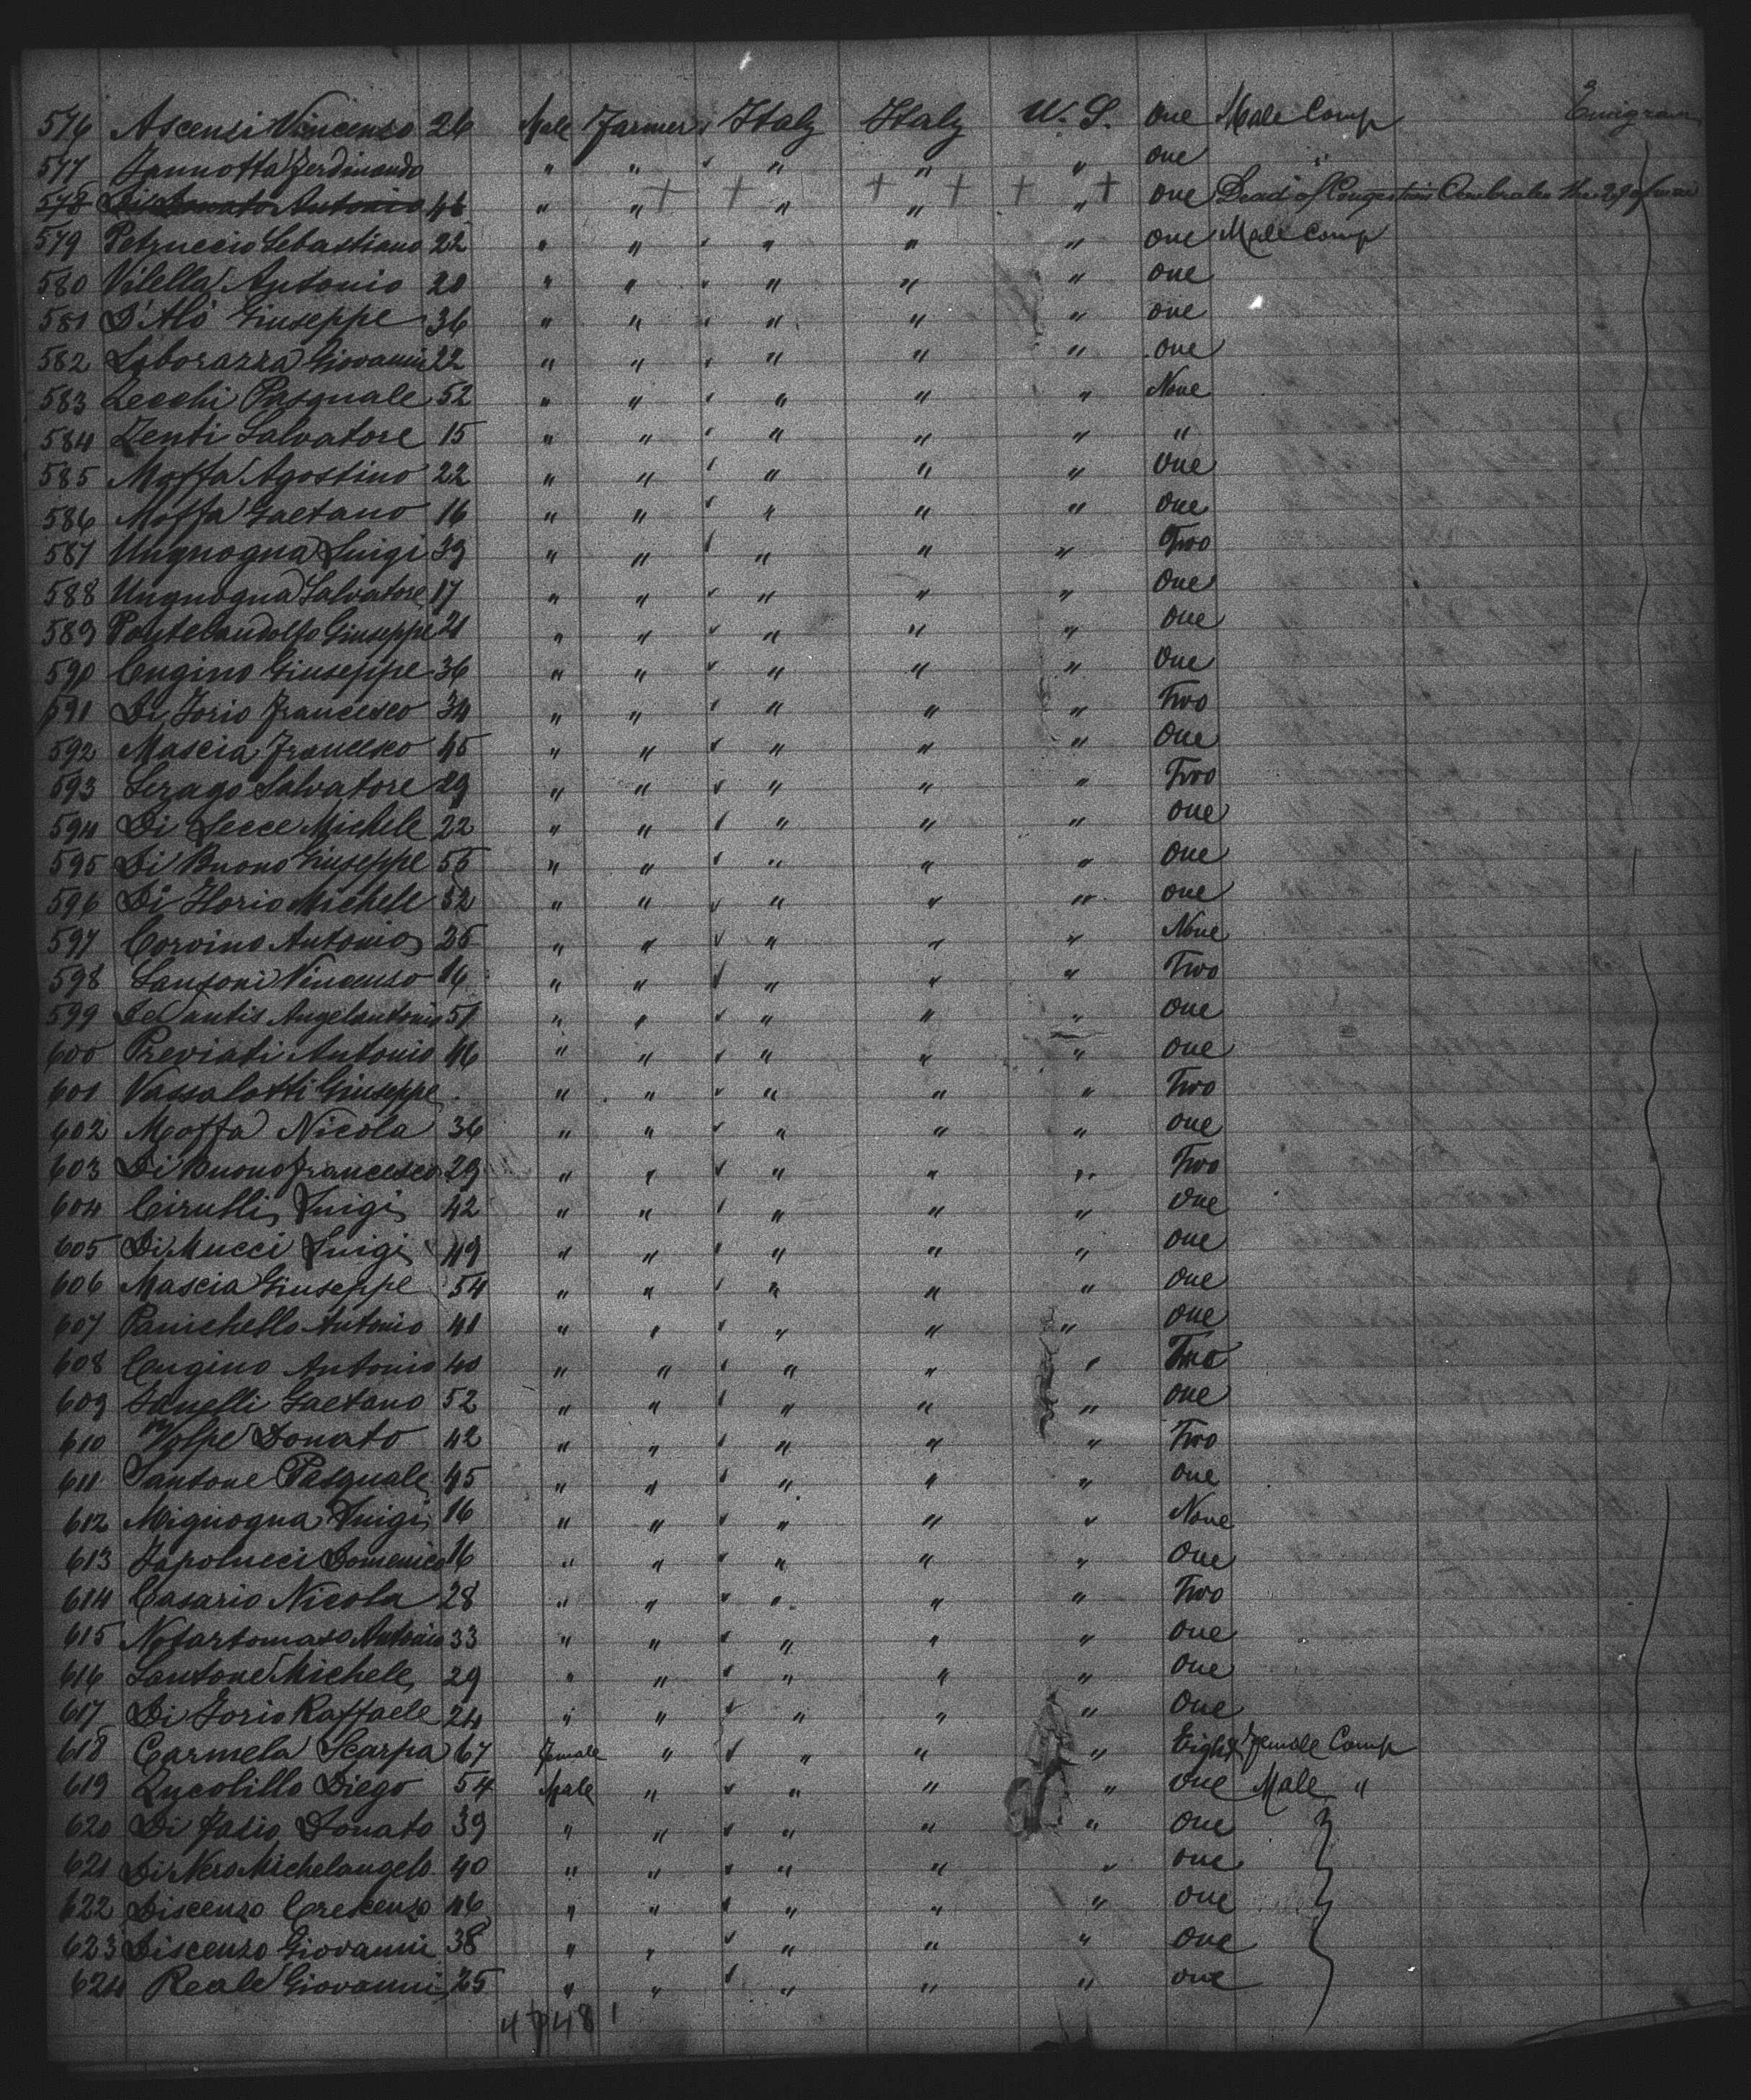 576 Ascenzi Vincenzo 26 Male Farmer Italy Italy U. S. One Male Comp Emigran
577 Iannotta Ferdinando " " " " " one "
578 Di Donato Antonio 46 " " " " " one Dead of Congestion Cerebrales the 29 of
579 Petruccio Sebastiano 22 " " " " " one Male Comp
580 Vilella Antonio 20 " " " " " one
581 D'Alò Giuseppe 36 " " " " " one
582 Laborazza Giovanni 22 " " " " " one
583 Lecchi Pasquale 52 " " " " " None
584 Zenti Salvatore 15 " " " " " "
585 Moffa Agostino 22 " " " " " One
586 Moffa Gaetano 16 " " " " " One
587 Ungnogna Luigi 39 " " " " " Two
588 Ungnogna Salvatore 17 " " " " " One
589 Pontelandolfo Giuseppe 21 " " " " " One
590 Cugino Giuseppe 36 " " " " " One
591 Di Iorio Francesco 34 " " " " " Two
592 Mascia Francesco 45 " " " " " One
593 Serago Salvatore 29 " " " " " Two
594 Di Lecce Michele 22 " " " " " one
595 Di Buono Giuseppe 55 " " " " " One
596 Di Florio Michele 32 " " " " " one
597 Corvino Antonio 25 " " " " " None
598 Sansoni Vincenzo 14 " " " " " Two
599 De Santis Angelantonio 51 " " " " " one
600 Previati Antonio 46 " " " " " one
601 Vassalotti Giuseppe " " " " " Two
602 Moffa Nicola 36 " " " " " one
603 Di Buono Francesco 29 " " " " " Two
604 Cirulli Luigi 42 " " " " " One
605 Di Mucci Luigi 49 " " " " " one
606 Mascia Giuseppe 54 " " " " " One
607 Panichello Antonio 41 " " " " " One
608 Cugino Antonio 40 " " " " " Two
609 Ianelli Gaetano 52 " " " " " one
610 Volpe Donato 42 " " " " " Two
611 Santone Pasquale 45 " " " " " one
612 Mignogna Luigi 16 " " " " " None
613 Iapolucci Domenico 16 " " " " " One
614 Casario Nicola 28 " " " " " Two
615 Notartomaso Antonio 33 " " " " " One
616 Santone Michele 29 " " " " " One
617 Di Iorio Raffaele 24 " " " " " One
618 Carmela Scarpa 67 Female " " " " Eight Female Comp
619 Zucolillo Diego 54 Male " " " " One Male "
620 Di Fasio Donato 39 " " " " " One
621 Di Nero Michelangelo 40 " " " " " one
622 Discenzo Crescenzo 46 " " " " " One
623 Discenzo Giovanni 38 " " " " " One
624 Reale Giovanni 25 " " " " " one